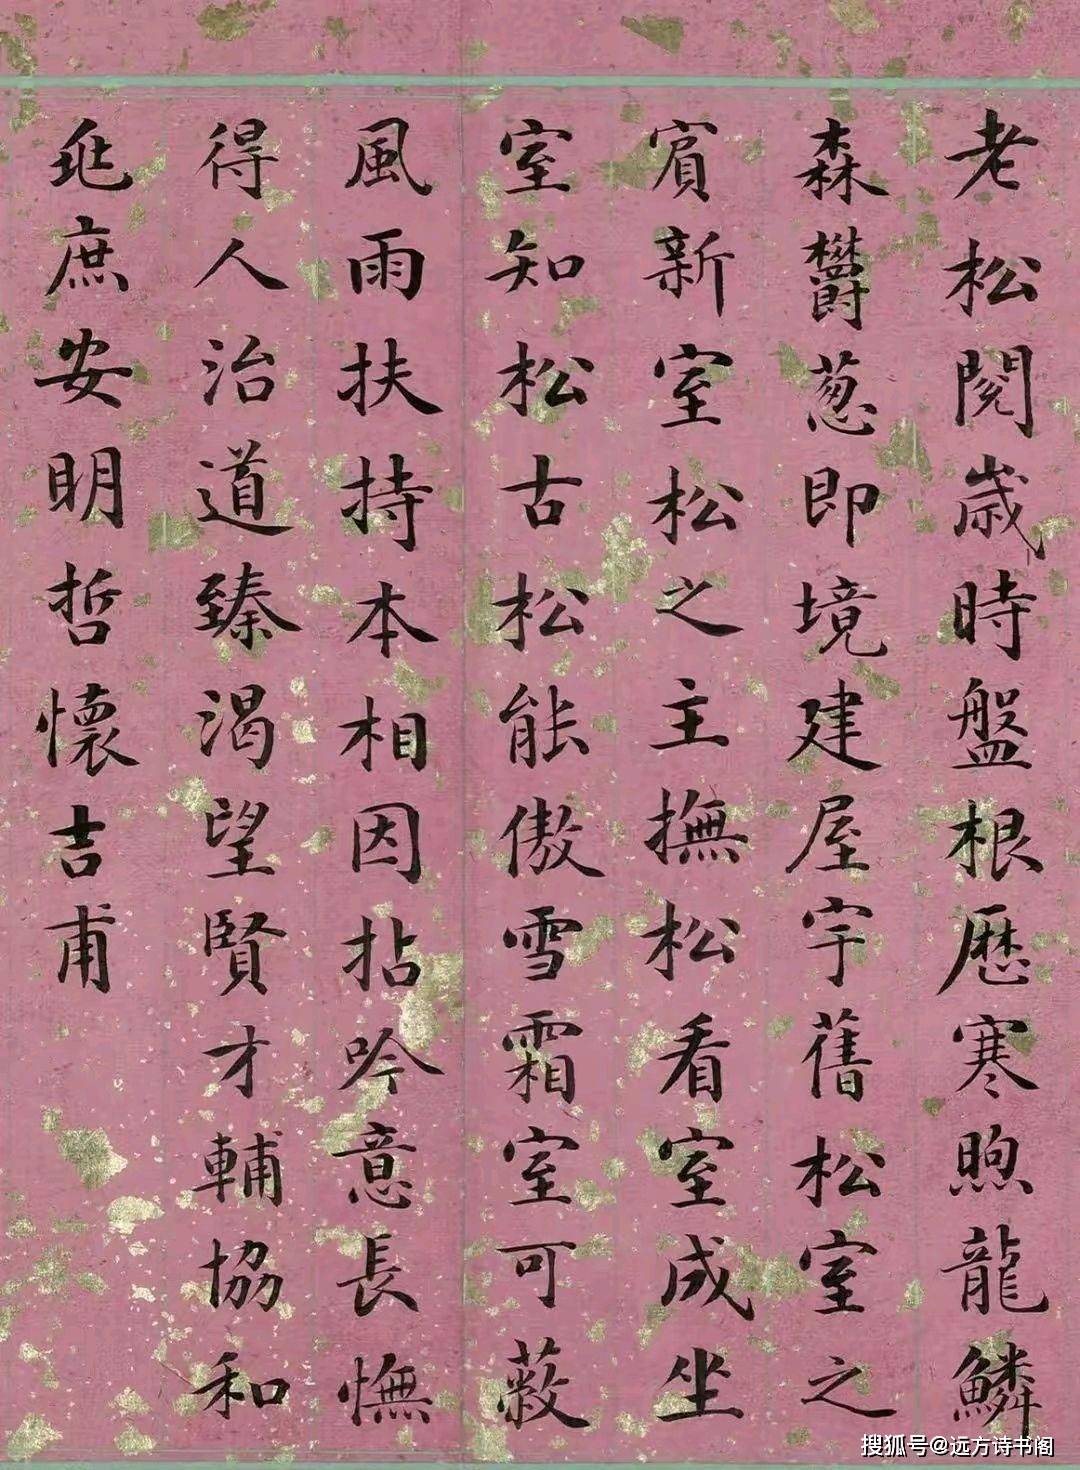 老松閱歲時盤根歷寒煦龍鱗
森鬱葱即境建屋宇舊松室之
賓新室松之主撫松看室成坐
室知松古松能傲雪霜室可蔽
風雨扶持本相因拈吟意長憮
得人治道臻渴望賢才輔協和
兆庶安明哲懷吉甫
搜狐号@远方诗书阁